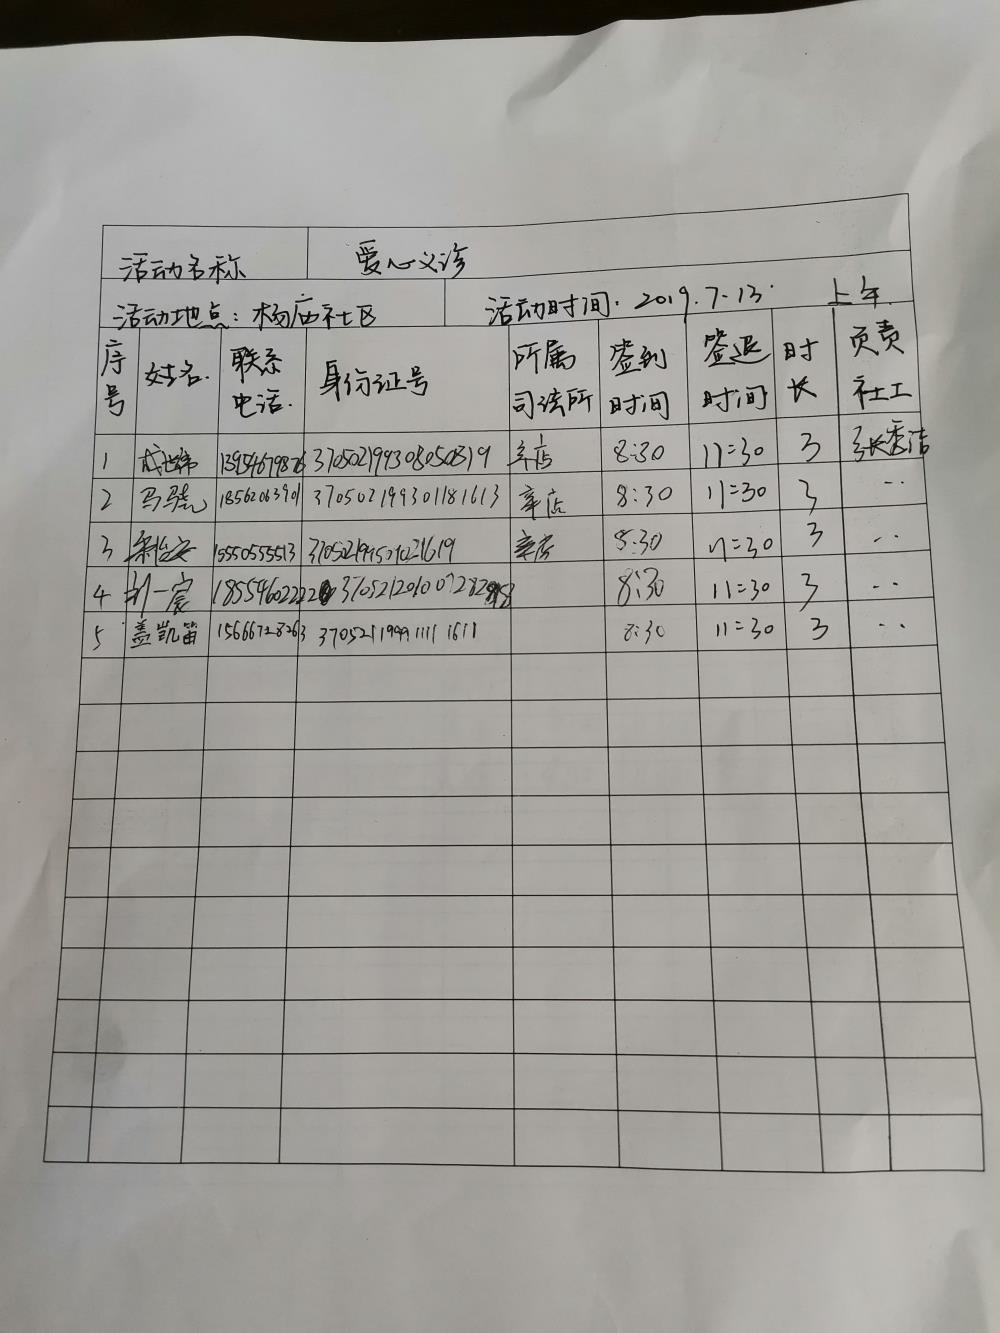 活动名称 爱心义诊
活动地点：杨庙社区 活动时间：2019.7.13. 上午.
序号 姓名. 联系电话. 身份证号 所属司法所 签到时间 签退时间 时长 负责社工
1 370502199308050819 辛店 8:30 11:30 3 张秀洁
2 马骁 18562063901 370502199301181613 辛店 8:30 11:30 3 ··
3 15550555513 辛店 8:30 11:30 3 ··
4 刘一宸 8:30 11:30 3 ··
5 盖凯笛 15666728263 8:30 11:30 3 ··